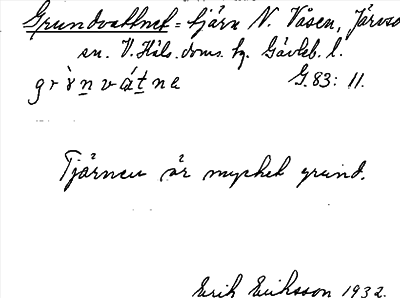 Grundvattnet = tjärn N. Våsen, Järvsö
sn. V. Häls. doms. hg. Gävleb. l.
grùnvátne G. 83: 11.
Tjärnen är mycket grund.
Erik Eriksson 1932.